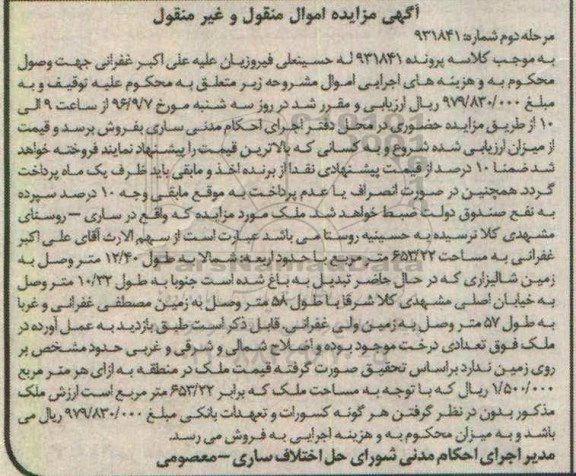 آگهی مزایده اموال منقول و غیر منقول
مرحله دوم شماره: ۹۳۱۸۴۱
به موجب کلاسه پرونده ۹۳۱۸۴۱ له حسینعلی فیروزیان علیه علی اکبر غفرانی جهت وصول
محکوم به و هزینه های اجرایی اموال مشروحه زیر متعلق به محکوم علیه توقیف و به
مبلغ ۹۷۹/۸۳۰/۰۰۰ ریال ارزیابی و مقرر شد در روز سه شنبه مورخ ۹۶/۹/۷ از ساعت ۹ الی
۱۰ از طریق مزایده حضوری در محل دفتر اجرای احکام مدنی ساری بفروش برسد و قیمت
از میزان ارزیابی شده شروع و به کسانی که بالاترین قیمت را پیشنهاد نمایند فروخته خواهد
شد ضمنا ۱۰ درصد از قیمت پیشنهادی نقدا از برنده اخذ و مابقی باید ظرف یک ماه پرداخت
گردد. همچنین در صورت انصراف یا عدم پرداخت به موقع مابقی وجه ۱۰ درصد سپرده
به نفع صندوق دولت ضبط خواهد شد. ملک مورد مزایده که واقع در ساری – روستای
مشهدی کلا نرسیده به حسینیه روستا می باشد عبارت است از سهم الارث آقای علی اکبر
غفرانی به مساحت ۶۵۳/۲۲ متر مربع با حدود اربعه: شمالا به طول ۱۲/۴۰ متر وصل به
زمین شالیزاری که در حال حاضر تبدیل به باغ شده است جنوبا به طول ۱۰/۳۲ متر وصل
به خیابان اصلی مشهدی کلا شرقا با طول ۵۸ متر وصل به زمین مصطفی غفرانی و غربا
به طول ۵۷ متر وصل به زمین ولی غفرانی. قابل ذکر است طبق بازدید به عمل آورده در
ملک فوق تعدادی درخت موجود بوده و اضلاع شمالی و شرقی و غربی حدود مشخص بر
روی زمین ندارد براساس تحقیق صورت گرفته قیمت ملک در منطقه به ازای هر متر مربع
۱/۵۰۰/۰۰۰ ریال که با توجه به مساحت ملک که برابر ۶۵۳/۲۲ متر مربع است ارزش ملک
مذکور بدون در نظر گرفتن هر گونه کسورات و تعهدات بانکی مبلغ ۹۷۹/۸۳۰/۰۰۰ ریال می
باشد و به میزان محکوم به و هزینه اجرایی به فروش می رسد.
مدیر اجرای احکام مدنی شورای حل اختلاف ساری – معصومی